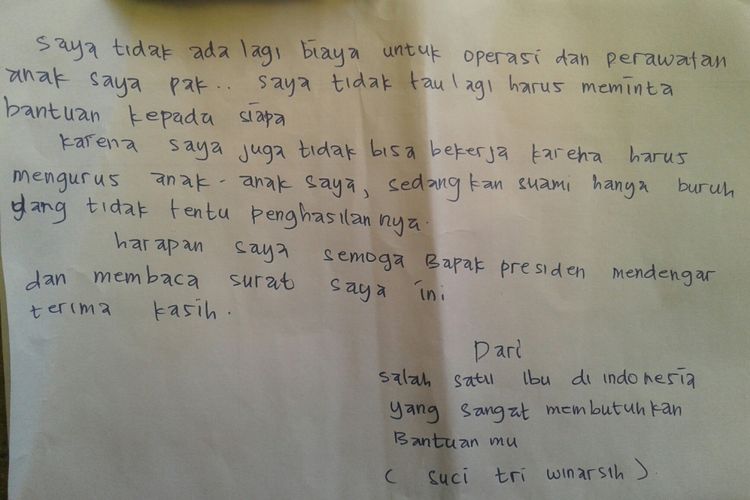 saya tidak ada lagi biaya untuk operasi dan perawatan
anak saya pak.. saya tidak tau lagi harus meminta
bantuan kepada siapa
karena saya juga tidak bisa bekerja karena harus
mengurus anak-anak saya, sedangkan suami hanya buruh
yang tidak tentu penghasilannya.
harapan saya semoga Bapak presiden mendengar
dan membaca surat saya ini
terima kasih.
Dari
salah satu Ibu di indonesia
yang sangat membutuhkan
Bantuan mu
( suci tri winarsih )